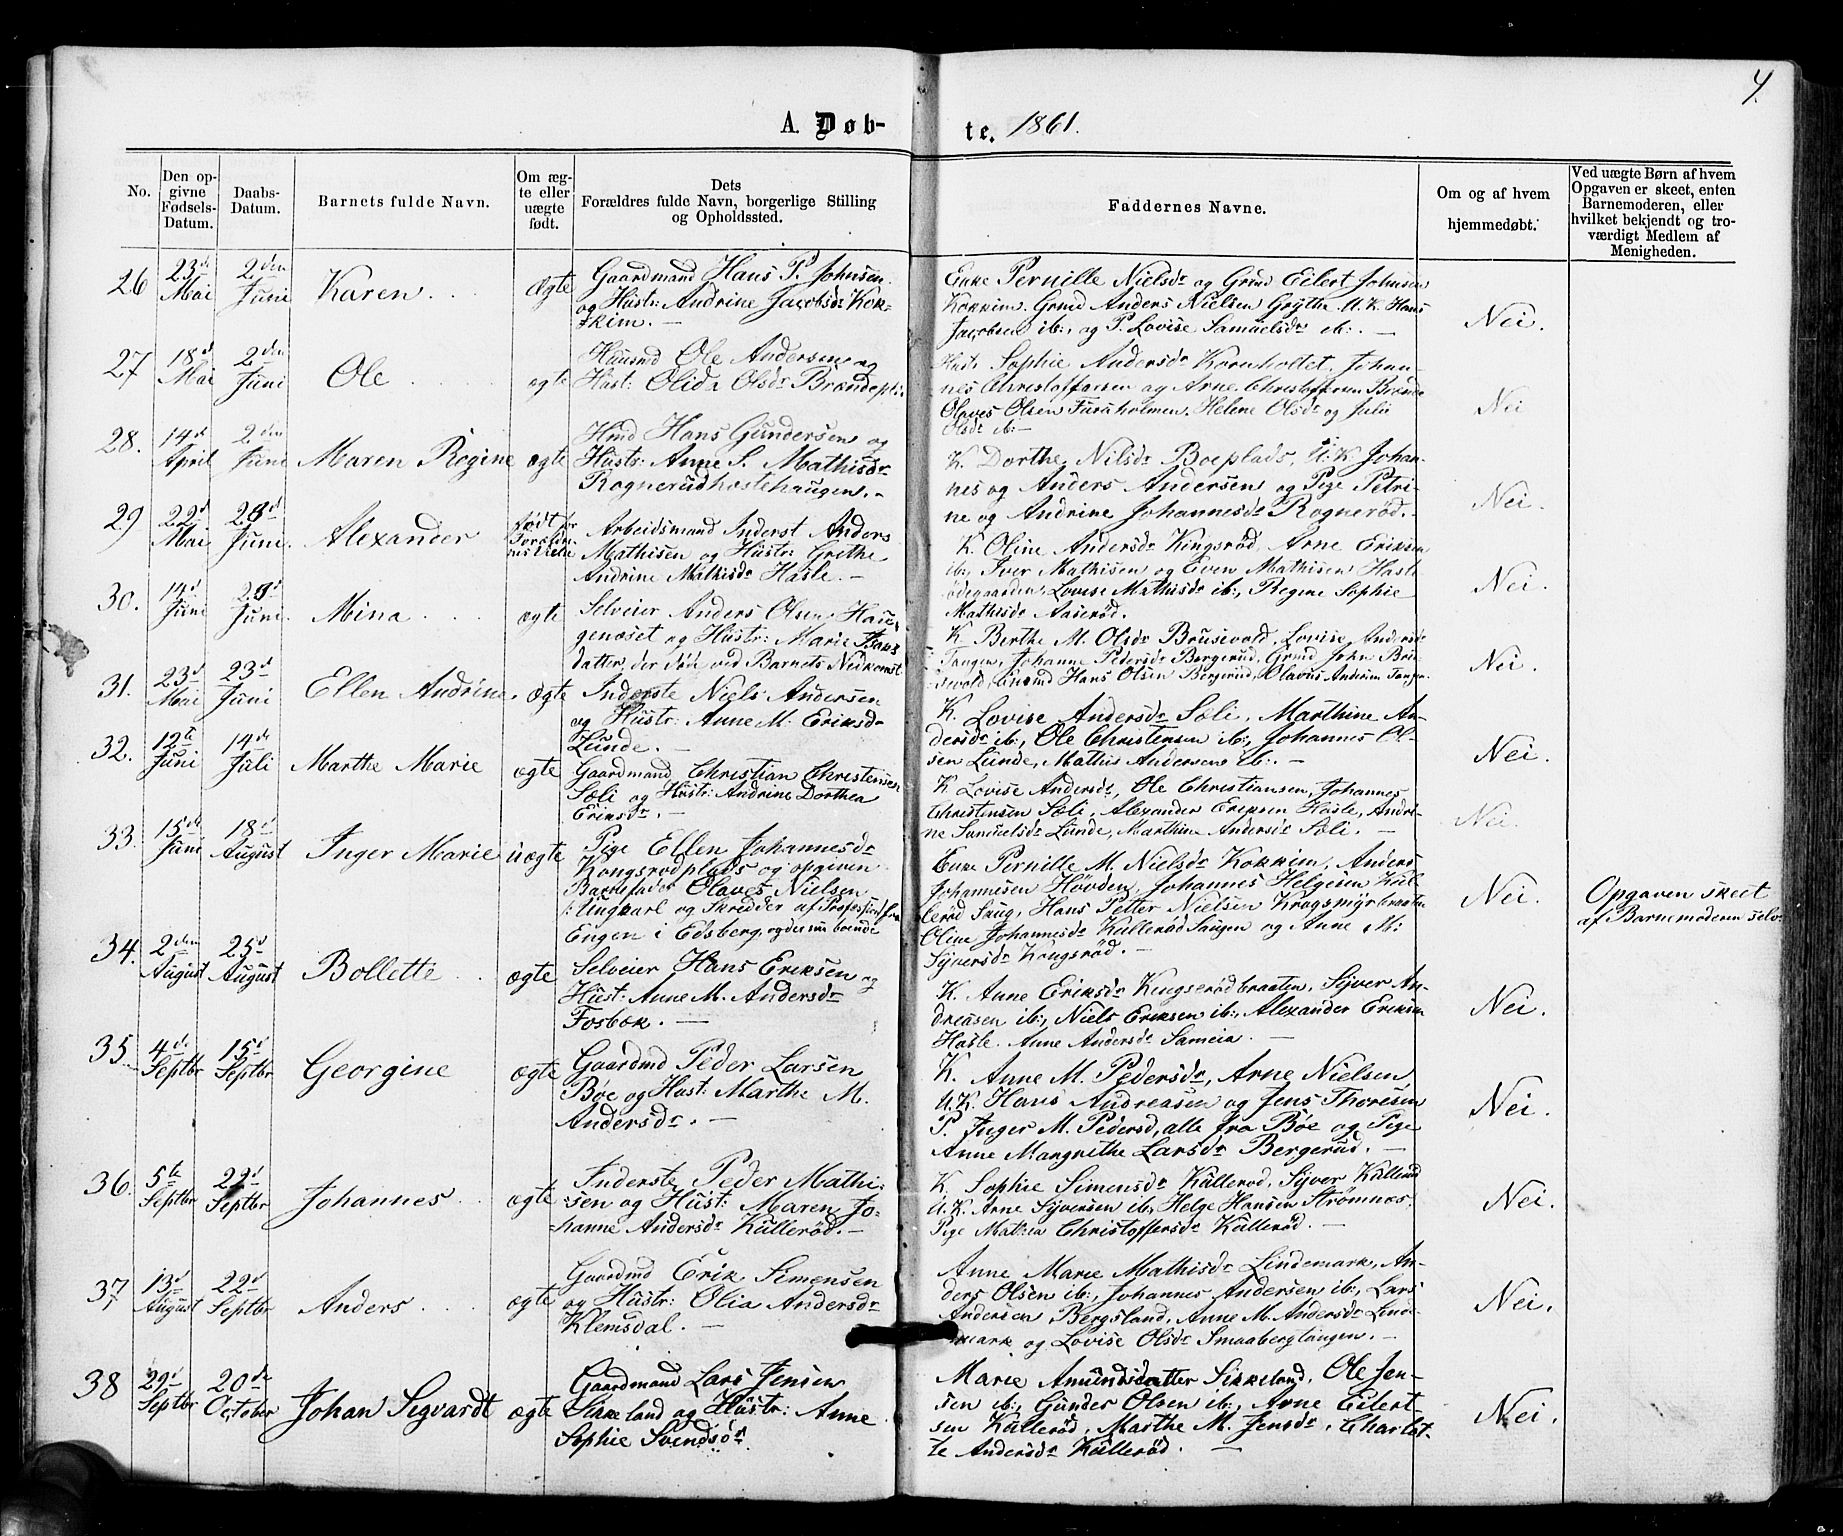 4.
A. Døb-
te. 1861.
No.
Den op-
givne
Fødsels-
Datum.
Daabs-
Datum.
Barnets fulde Navn.
Om æg-
te eller
uægte
født.
Dets
Forældres fulde Navn, borgerlige Stilling
og Opholdssted.
Faddernes Navne.
Om og af hvem
hjemmedøbt.
Ved uægte Børn af hvem
Opgaven er skeet, enten
Barnemoderen, eller
hvilket bekjendt og tro-
værdigt Medlem af
Menigheden.
26
23d
Mai
2den
Juni
Karen
ægte
Gaardmand Hans P. Johnsen
og Hustr: Andrine Jacobsdr Kok-
skim. —
Enke Pernille Nielsdr og Grmd Eilert Johnsen
Kokkim. Grmd Anders Nielsen Grytte U. K. Hans
Jacobsen ib:, og P. Lovise Samuelsdr ib:. —
Nei.
27
18d
Mai
2den
Juni
Ole
ægte
Huusmd Ole Andersen og
Hust: Olide Olsdr Brændepl:
Hust. Sophie Andersdr Kornholtet, Johan-
nes Christoffersen og Arne Christoffersen
Olaves Olsen Furuholmen, Helene Olsdr og Julie
Olsdr ib:—
Nei
28.
14d
April
2den
Juni
Maren Regine
ægte
Hmd Hans Gundersen og
Hustr: Anne S. Mathisdr
Rognerudkostehaugen. —
K. Dorthe Nilsdr Boeplads, U.K Johan-
nes og Anders Andersen og Pige Petri-
ne og Andrine Johannesdr Rognerød. —
Nei.
29
22d
Mai
Juni.
Alexander
født før
Forældre-
nes Vielse
Arbeidsmand Inderst Anders
Mathisen og Hustr: Grethe
Andrine Mathisdr Hasle. —
K. Oline Andersdr Kingsrød, Arne Eriksen
ib:, Iver Mathisen og Even Mathisen Hasle
ødegaarden, Lovise Mathisdr ib:, Regine Sophie
Mathisdr Aaserød.
Nei.
30.
14d
Juni
Juni.
Mina
ægte
Selveier Anders Olsen Hau-
genæset og Hustr: Marie Isaks
datter, der død ved Barnets Nedkomst
K. Berthe M. Olsdr Brusevold, Lovise Andersdr
Tangen, Johanne Pedersdr Bergerud, Grmd John Bru-
sevold, Hans Olsen Bergerud, Olavus Andersen Tangen.
Nei.
31.
23d
Mai
23d
Juni
Ellen Andrine.
ægte
Inderste Niels Andersen
og Hustr: Anne M. Eriksdr
Lunde. —
K. Lovise Andersdr Sæli, Marthine An-
dersdr ib:, Ole Christensen ib:, Johannes Ol-
sen Lunde, Mathis Andersens ib:. —
Nei.
32.
12te
Juni
14de
Juli
Marthe Marie
ægte
Gaardmand Christian Christensen
Sæli og Hustr: Andrine Dorthea
Eriksdr. —
K Lovise Andersdr, Ole Christiansen, Johannes
Christensen Sæli, Alexander Eriksen Hasle, Andri-
ne Samuelsdr Lunde, Marthine Andersdr Sæli. —
Nei.
33.
15de
Juni
18d
August
Inger Marie
uægte
Pige Ellen Johannesdr
Kongsrødplads og opgiven
Barnefader Olaves Nielsen
/: Ungkarl og Skredder af Profession fra
Engen i Edsberg, og der nu boende
Enke Pernille M. Nielsdr Kokkim, Anders
Johannesen Høvden, Johannes Helgesen Kul-
lerød Saug, Hans Petter Nielsen Kragsmyrbraaten
Oline Johannesdr Kullerød Saugen og Anne M:
Syversdr Kongsrød. —
Nei.
Opgaven skeet
af Barnemoderen selv.
34.
2den
August
25d
August
Bollette
ægte
Selveier Hans Eriksen og
Hust: Anne M. Andersdr
Fosbøk. —
K. Anne Eriksdr Kingserødbraaten, Syver An-
dreasen ib:, Niels Eriksen ib:, Alexander Eriksen
Hasle. Anne Andersdr Sameia. —
Nei.
35.
4de
Septbr
15d
Septbr
Georgine
ægte
Gaardmd Peder Larsen
Bøe og Hust: Marthe M.
Andersdr. —
K. Anne M. Pedersdr, Arne Nielsen
U.K. Hans Andreasen og Jens Thoresen
P. Inger M. Pedersd, alle fra Bøe og Pige
Anne Margrethe Larsdr Bergerud. —
Nei.
36.
5te
Septbr
22d
Septbr
Johannes
ægte
Inderste Peder Mathi-
sen og Hust: Maren Jo-
hanne Andersdr Kullerød. —
K. Sophie Simensdr Kullerød, Syver Kullerud
U.K. Arne Syversen ib, Helge Hansen Strømnæs,
Pige Mathea Christoffersdr Kullerød. —
Nei.
37,
13d
August
22d
Septbr
Anders
ægte
Gaardmd Erik Simensen
og Hustr: Olia Andersdr
Klemsdal. —
Anne Marie Mathisdr Lindemark, An-
ders Olsen ib:, Johannes Andersen ib:, Lars
Andersen Bergsland, Anne M. Andersdr Linde-
mark og Lovise Olsdr Smaabergtangen. —
Nei.
38
29d
Septbr
20de
October
Johan Segvardt
ægte
Gaardmand Lars Jensen
Sikkeland og Hustr: Anne
Sophie Svendsdr
Marie Amundsdatter Sikkeland, Ole Jen-
sen ib:, Gunder Olsen ib:, Arne Eilert-
sen Kullerød, Marthe M. Jensdr, Charlot-
te Andersdr Kullerød. —
Nei.